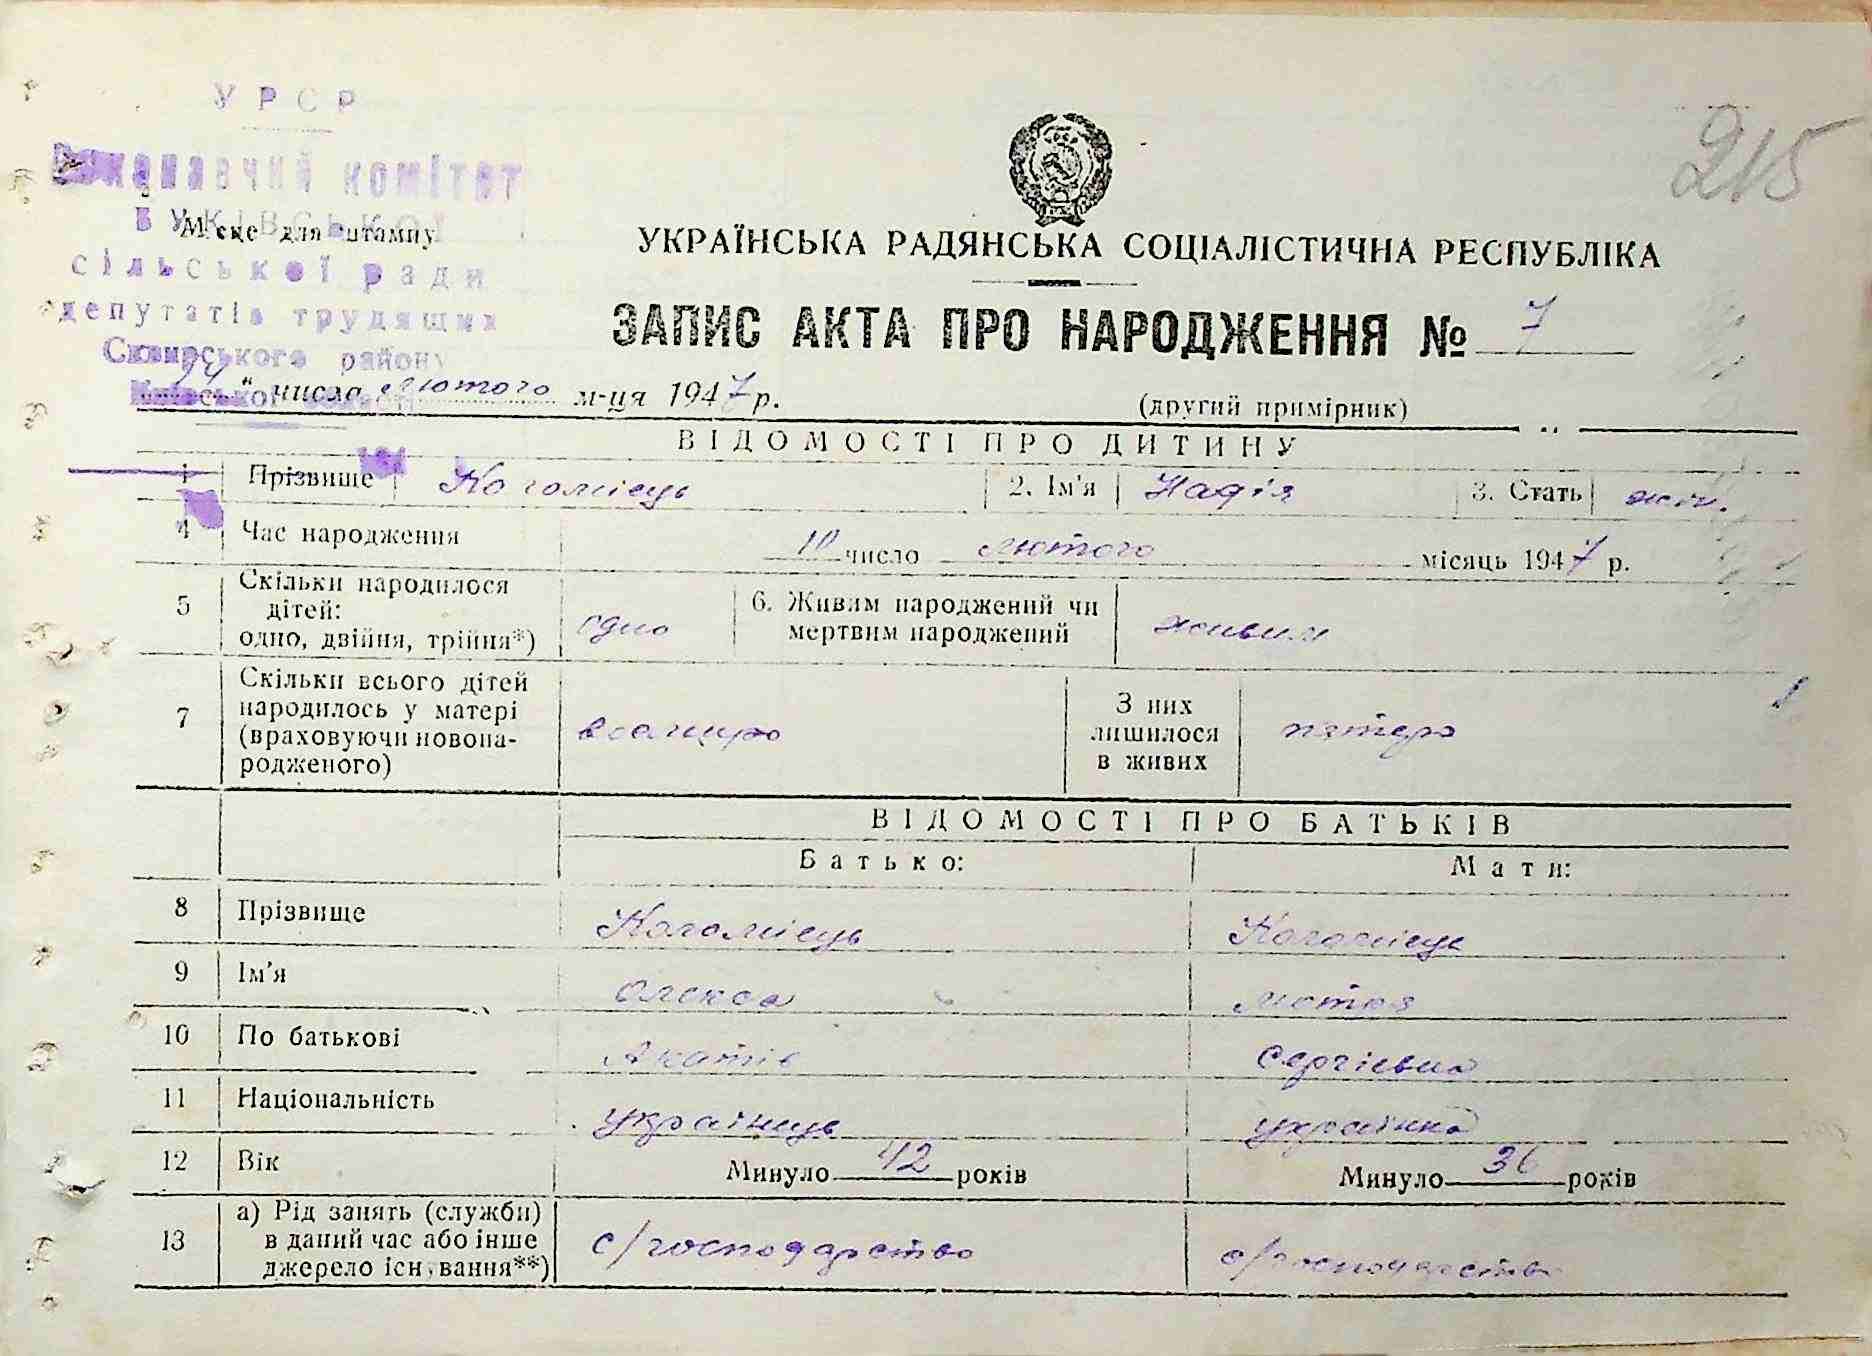 УРСР
Виконавчий комітет
Буківської
Місце для штампу
сільської ради
депутатів трудящих
Сквирського району
Київської області
215
УКРАЇНСЬКА РАДЯНСЬКА СОЦІАЛІСТИЧНА РЕСПУБЛІКА
ЗАПИС АКТА ПРО НАРОДЖЕННЯ № 7
" числа лютого м-ця 1947 р.
(другий примірник)
ВІДОМОСТІ ПРО ДИТИНУ
1 Прізвище Коломієць 2. Ім'я Надія 3. Стать жін.
4 Час народження 10 число лютого місяць 1947 р.
5 Скільки народилося дітей: одно, двійня, трійня*) одно 6. Живим народжений чи мертвим народжений живим
7 Скільки всього дітей народилось у матері (враховуючи новонародженого) З них лишилося в живих пятеро
ВІДОМОСТІ ПРО БАТЬКІВ
Батько: Мати:
8 Прізвище Коломієць Коломієць
9 Ім'я Олекса
10 По батькові Сергіевна
11 Національність українець українка
12 Вік Минуло 42 років Минуло 36 років
13 а) Рід занять (служби) в даний час або інше джерело існування**) с/господарство с/господарство